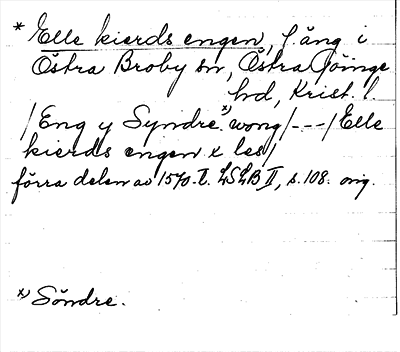 * Elle kierds engen, f. äng i
Östra Broby sn, Östra Göinge
hd, Krist. l.
/Eng y Syndre x) wong/---/Elle
kierds engen x les/
förra delen av 1570-t. LSLB II, s. 108. orig.
x) Söndre.